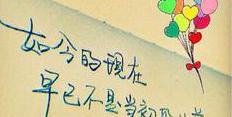 如今的现在
早已不是当初